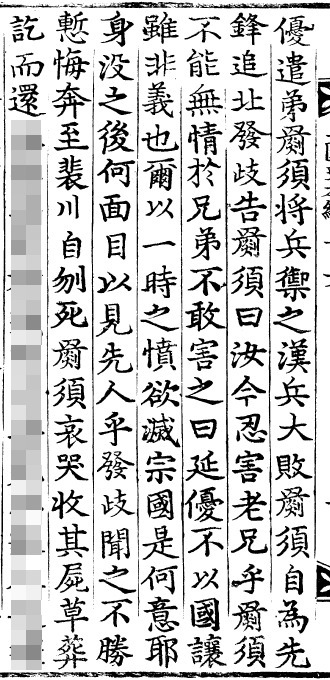 優遣弟罽須将兵禦之漢兵大敗罽須自為先
鋒追北發歧告罽須曰汝今忍害老兄乎罽須
不能無情於兄弟不敢害之曰延優不以國讓
雖非義也爾以一時之憤欲滅宗國是何意耶
身没之後何面目以見先人乎發歧聞之不勝
慙悔奔至裴川自刎死罽須哀哭收其屍草葬
訖而還